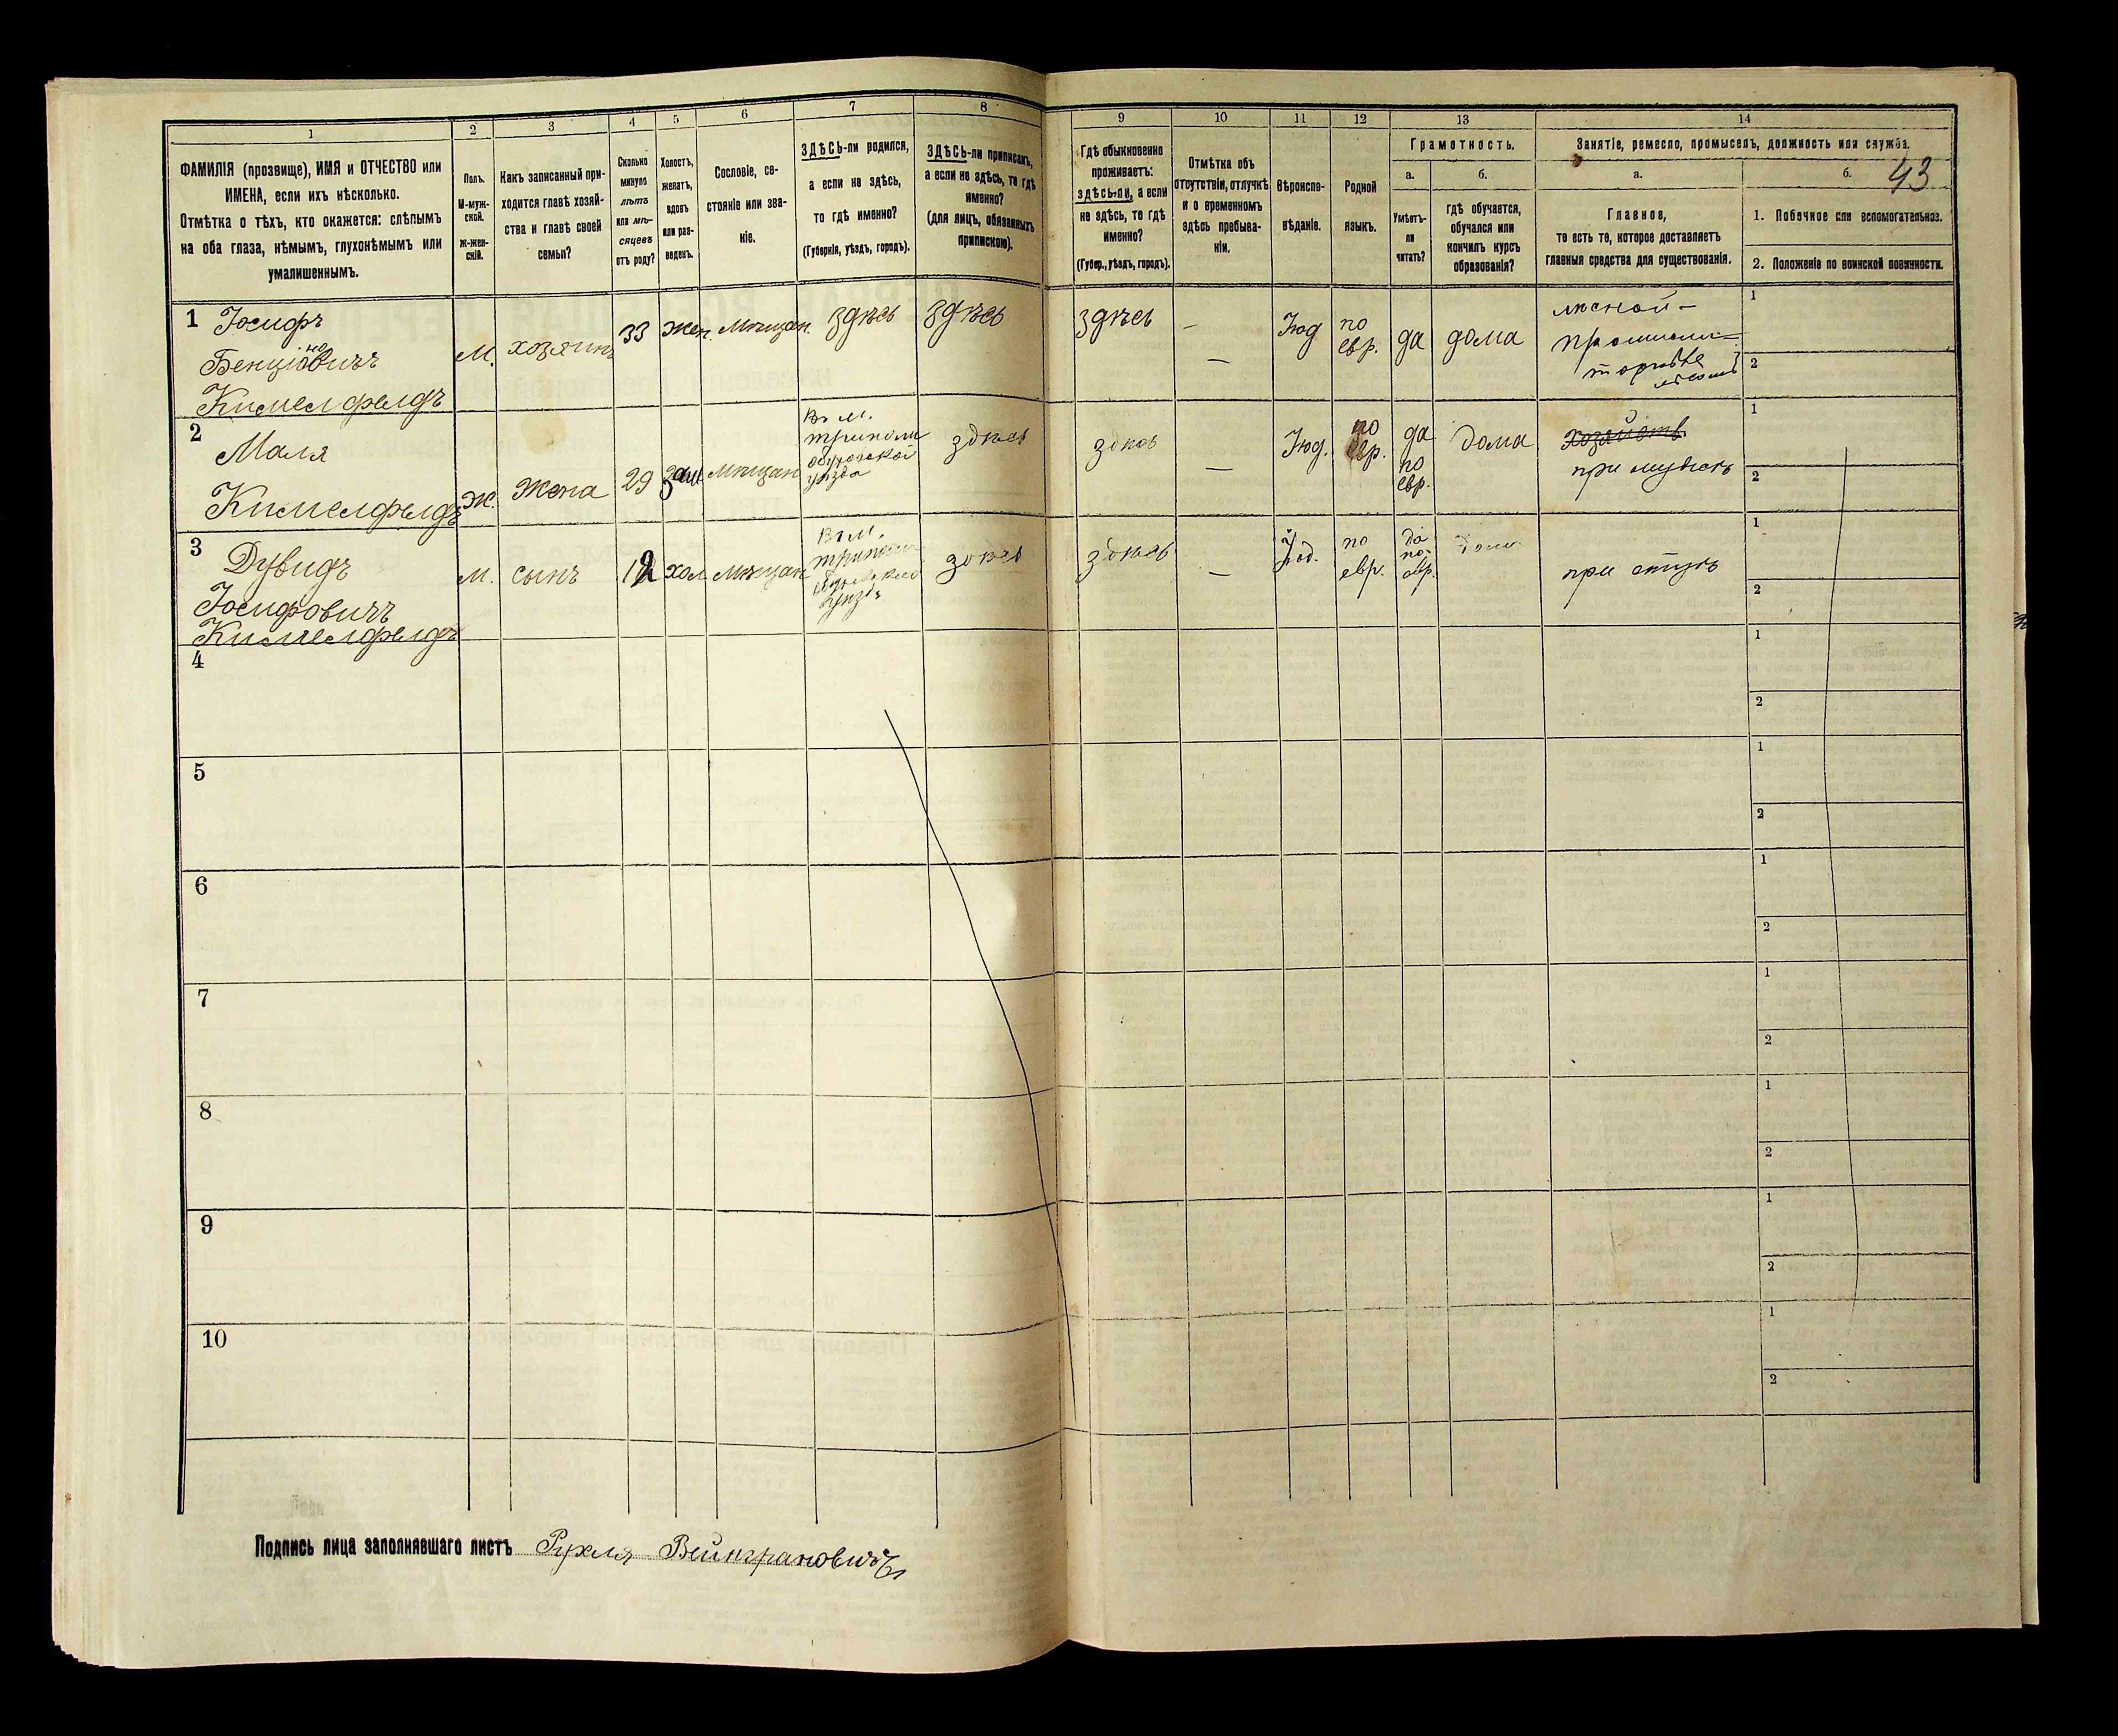 1 2 3 4 5 6 7 8 9 10 11 12 13 14
ФАМИЛІЯ (прозвище), ИМЯ и ОТЧЕСТВО или
ИМЕНА, если ихъ нѣсколько.
Отмѣтка о тѣхъ, кто окажется: слѣпымъ
на оба глаза, нѣмымъ, глухонѣмымъ или
умалишеннымъ.
Полъ.
М-муж-
ской.
Ж-жен-
скій.
Какъ записанный при-
ходится главѣ хозяй-
ства и главѣ своей
семьи?
Сколько
минуло
лѣтъ
или мѣ-
сяцевъ
отъ роду?
Холостъ,
женатъ,
вдовъ
или раз-
веденъ.
Сословіе, со-
стояніе или зва-
ніе.
ЗДѢСЬ-ли родился,
а если не здѣсь,
то гдѣ именно?
(Губернія, уѣздъ, городъ).
ЗДѢСЬ-ли приписанъ,
а если не здѣсь, то гдѣ
именно?
(для лицъ, обязанныхъ
припискою).
Гдѣ обыкновенно
проживаетъ:
здѣсь-ли, а если
не здѣсь, то гдѣ
именно?
(Губер., уѣздъ, городъ).
Отмѣтка объ
отсутствіи, отлучкѣ
и о временномъ
здѣсь пребыва-
ніи.
Вѣроиспо-
вѣданіе.
Родной
языкъ.
Грамотность.
а.
Умѣетъ-
ли
читать?
б.
гдѣ обучается,
обучался или
кончилъ курсъ
образованія?
Занятіе, ремесло, промыселъ, должность или служба.
а.
Главное,
то есть то, которое доставляетъ
главныя средства для существованія.
б.
43
1. Побочное или вспомогательное.
2. Положеніе по воинской повинности.
1 Іосифъ
Бенціоновичъ
Кимелфелдъ
М. хозяинъ 33 Жен. Мѣщан. здѣсь здѣсь здѣсь — Іюд по
евр. да дома
лѣсной
торговле
1
2
2
Маля
Кимелфелдъ
Ж. Жена 29 Зам Мѣщан
въ м.
уѣзда
здѣсь здѣсь — Іюд. по
евр. да
по
евр. дома
хозяйств.
при мужѣ
1
2
3
Дувидъ
Іосифовичъ
Кимелфелдъ
М. сынъ хол Мѣщан
въ м.
здѣсь здѣсь — Іюд. по
евр. да
по
евр. дома
при отцѣ
1
2
4
1
2
5
1
2
6
1
2
7
1
2
8
1
2
9
1
2
10
1
2
Подпись лица заполнявшаго листъ Рухля